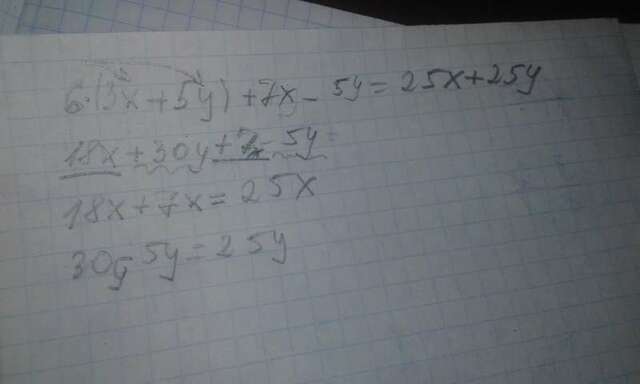 6·(3x+5y)+7x-5y=25x+25y
18x+30y+7x-5y=
18x+7x=25x
30y-5y=25y